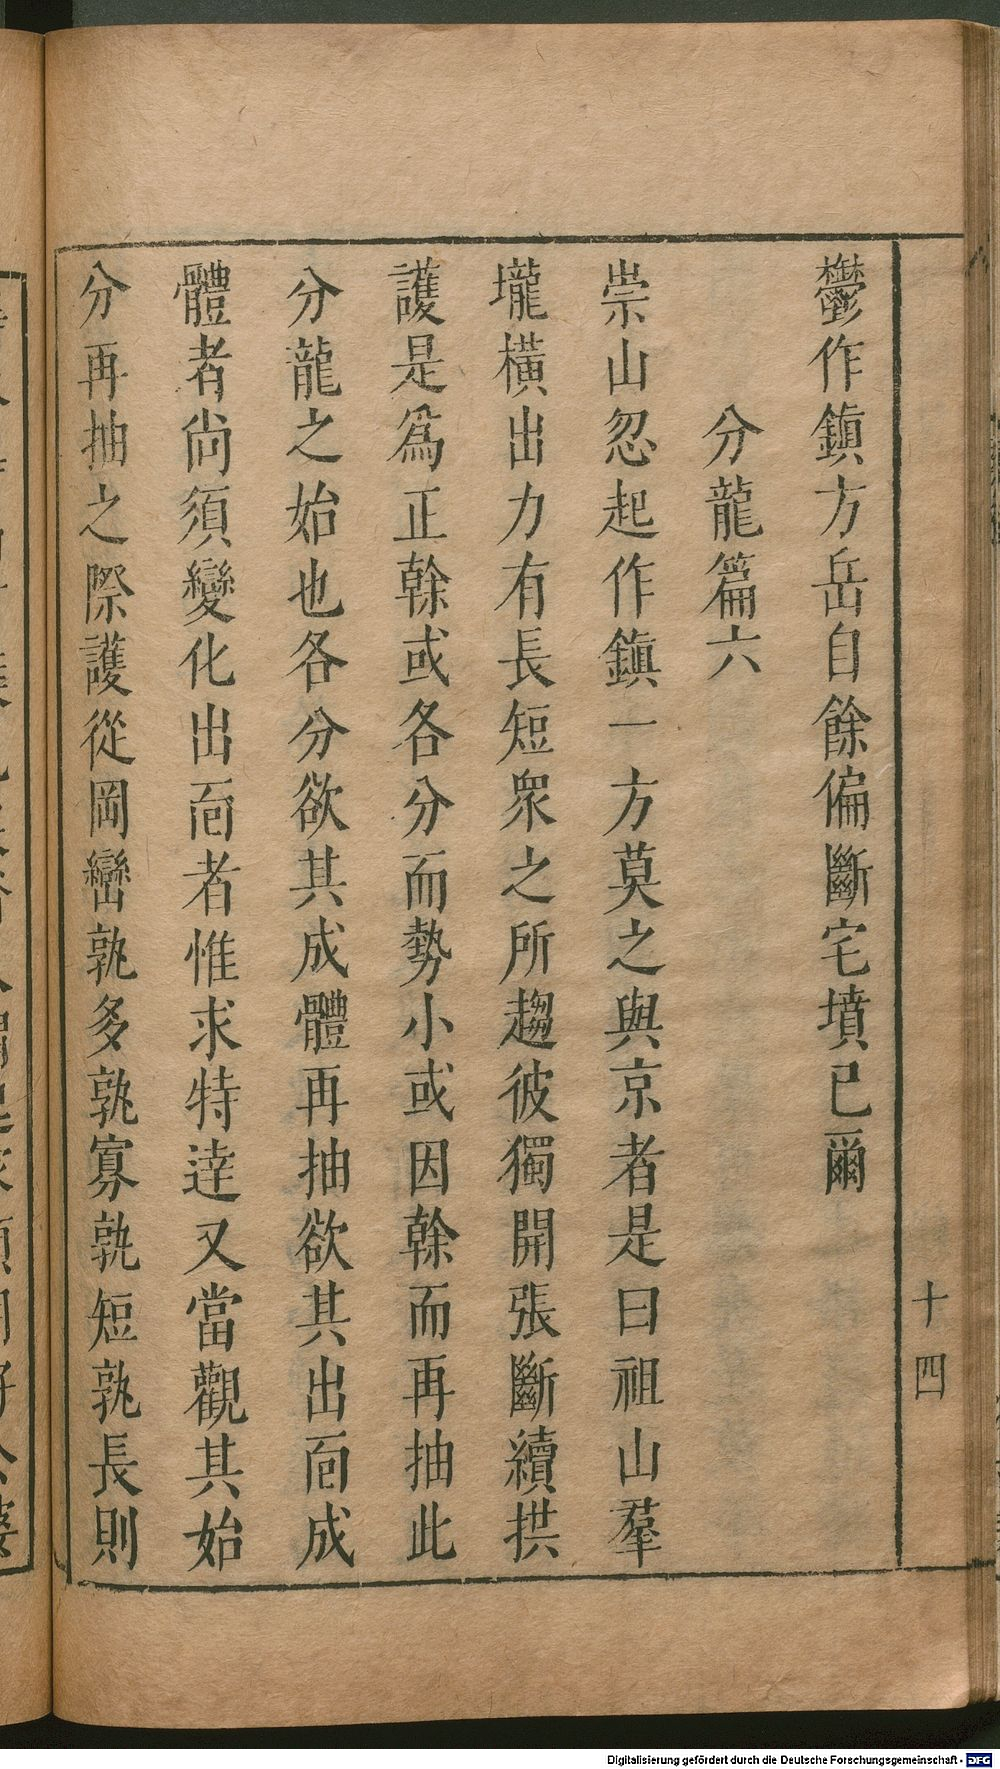 鬱作鎮方岳自餘偏斷宅墳已爾
分龍篇六
崇山忽起作鎮一方莫之與京者是曰祖山羣
壠橫出力有長短衆之所趨彼獨開張斷續拱
護是爲正榦或各分而勢小或因榦而再抽此
分龍之始也各分欲其成體再抽欲其出面成
體者尚須變化出面者惟求特達又當觀其始
分再抽之際護從岡巒孰多孰寡孰短孰長則
十四
Digitalisierung gefördert durch die Deutsche Forschungsgemeinschaft - DFG